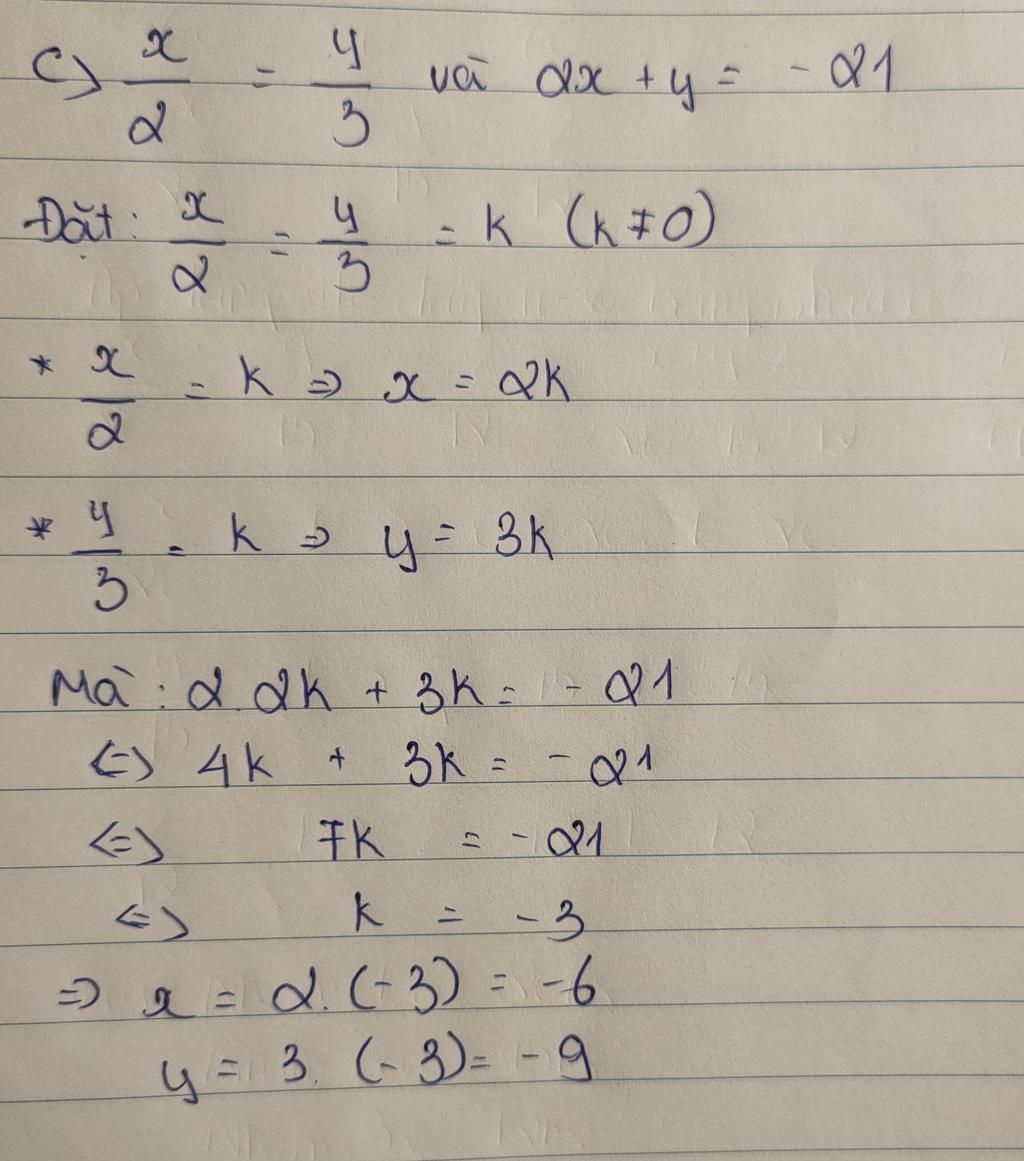 c) x/2 = y/3 và 2x + y = - 21
Đặt: x/2 = y/3 = k (k ≠ 0)
* x/2 = k => x = 2k
* y/3 = k => y = 3k
Mà: 2.2k + 3k = - 21
<=> 4k + 3k = - 21
<=> 7k = - 21
<=> k = - 3
=> x = 2.(-3) = -6
y = 3.(-3) = -9